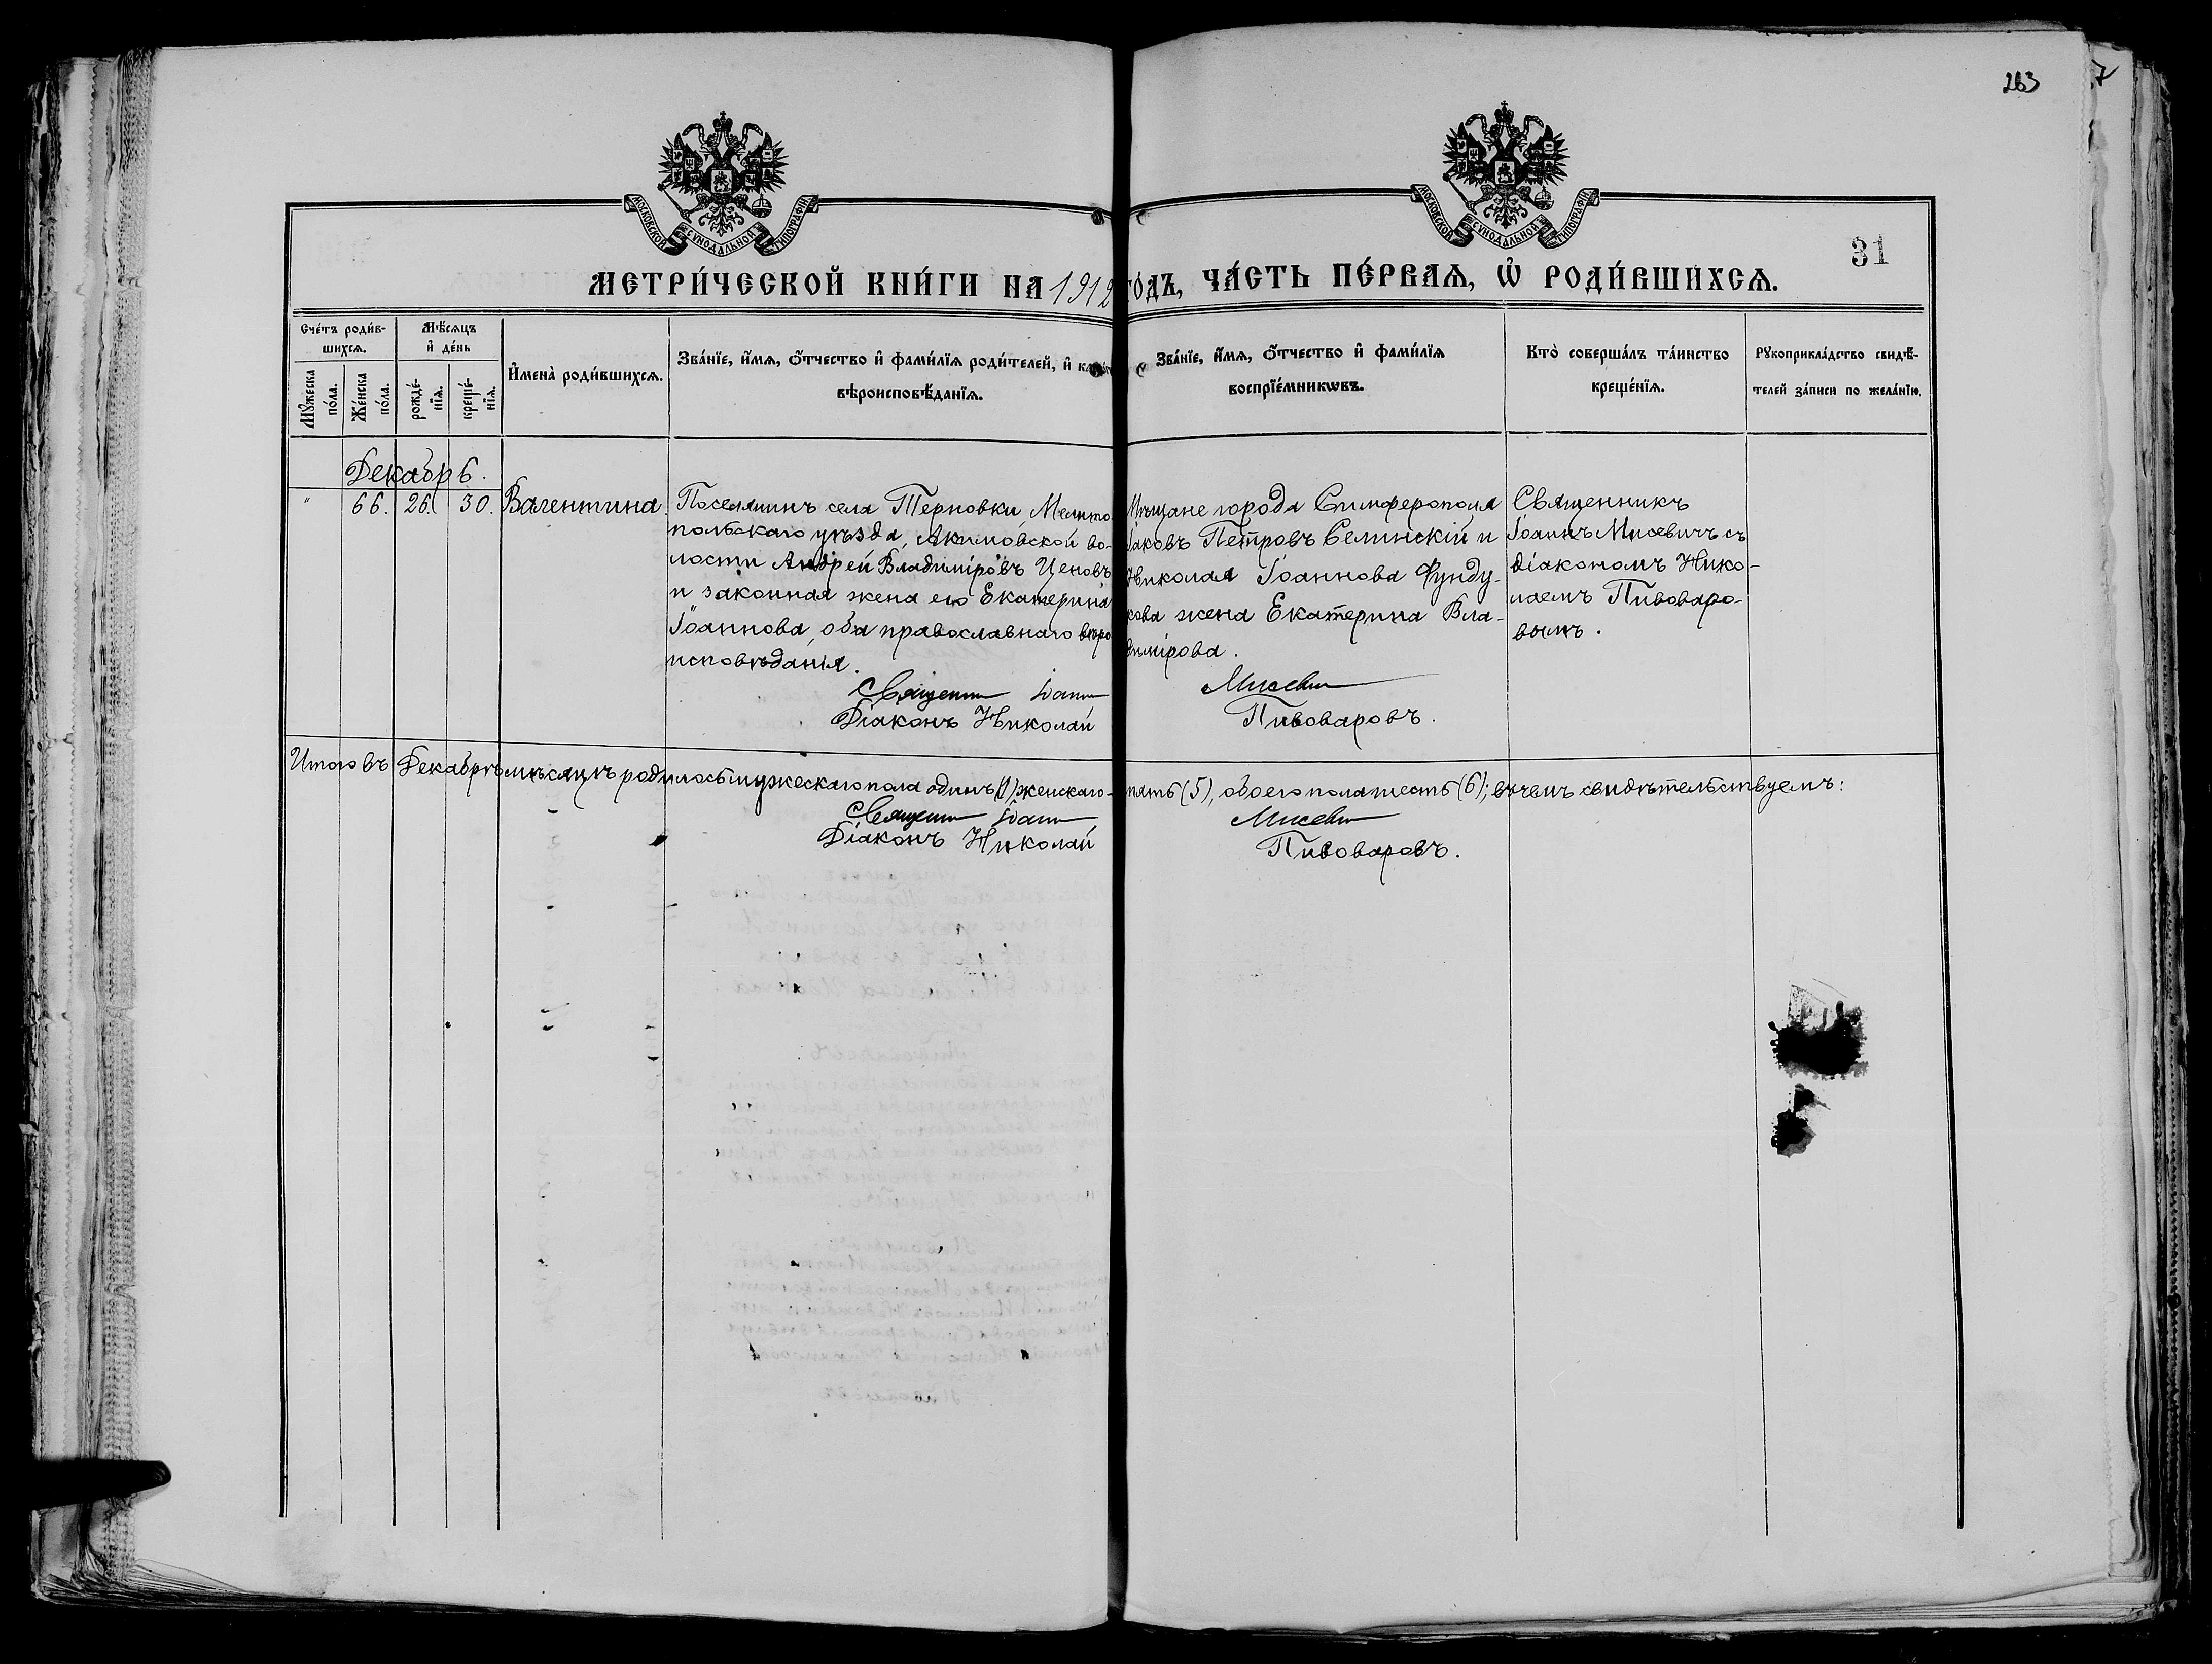 263
7
МОСКОВСКОЙ СУНОДАЛЬНОЙ ТИПОГРАФІИ
МОСКОВСКОЙ СУНОДАЛЬНОЙ ТИПОГРАФІИ
31
МЕТРИ́ЧЕСКОЙ КНИ́ГИ НА 1912 ГО́ДЪ, ЧА́СТЬ ПЕ́РВАѦ, Ѡ҆ РОДИ́ВШИХСѦ.
Сче́тъ роди́в-
шихсѧ.
Мѣ́сѧцъ
и҆ де́нь
Мꙋ́жеска
по́ла.
Же́нска
по́ла.
рожде́-
нїѧ.
креще́-
нїѧ.
И҆мена̀ роди́вшихсѧ.
Зва́нїе, и҆́мѧ, ѻ҆́тчество и҆ фами́лїѧ роди́телей, и҆
вѣроисповѣ́данїѧ.
Зва́нїе, и҆́мѧ, ѻ҆́тчество и҆ фами́лїѧ
воспрїе́мникѡвъ.
Кто̀ соверша́лъ та́инство
креще́нїѧ.
Рꙋкоприкла́дство свидѣ́-
телей за́писи по жела́нїю.
Декабрь.
" 66. 26. 30. Валентина
Поселянинъ села Терновки, Мелито-
польскаго уѣзда, Акимовской во-
лости Андрей Владиміровъ Ценовъ
и законная жена его Екатерина
Іоаннова, оба православнаго вѣро
исповѣданія.
Мѣщане города Симферополя
Іаковъ Петровъ Селинскій и
Николая Іоаннова Фунду-
кова жена Екатерина Вла-
димірова.
Священникъ
Іоаннъ Мисевичъ съ
діакономъ Нико-
лаемъ Пивоваро-
вымъ.
Священникъ Іоаннъ Мисевичъ
Діаконъ Николай Пивоваровъ.
Итого въ Декабрѣ мѣсяцѣ родилось мужескаго пола одинъ (1) женскаго- пять (5), обоего пола шесть (6); въ чемъ свидѣтельствуемъ:
Священникъ Іоаннъ Мисевичъ
Діаконъ Николай Пивоваровъ.